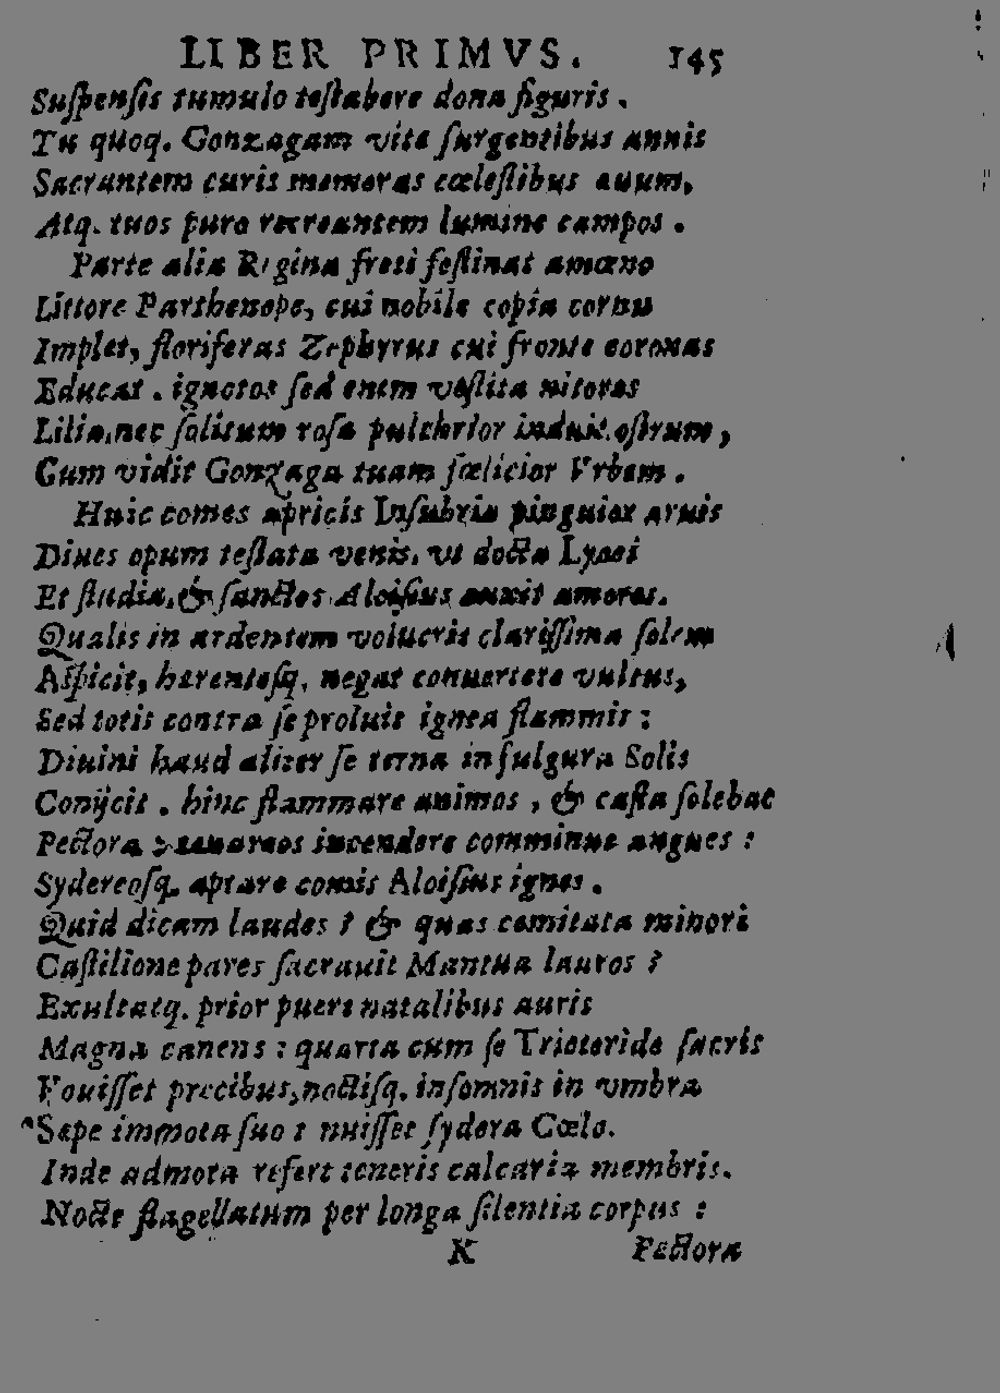 LIBER PRIMVS. 145
Suſpenſis tumulo teſtabere dona figuris.
Tu quoq. Gonzagam vitæ ſurgentibus annis
Sacrantem curis memoras cœleſtibus æuum,
Atq. tuos puro recreantem lumine campos.
Parte alia Regina freti feſtinat amœno
Littore Parthenope, cui nobile copia cornu
Implet, floriferas Zephyrus cui fronte coronas
Educat. ignotos ſed enim veſtita nitores
Lilia, nec ſolitum roſa pulchrior induit oſtrum,
Cum vidit Gonzaga tuam fœlicior Vrbem.
Huic comes apricis Inſubria pinguior aruis
Diues opum teſtata venis, vt docta Lycæi
Et ſtudia, & ſanctos Aloiſius auxit amores.
Qualis in ardentem volucris clariſſima ſolem
Aſpicit, hærenteſq. negat conuertere vultus,
Sed totis contra ſe proluit ignea flammis:
Diuini haud aliter ſe terna in fulgura Solis
Conijcit. hinc flammare animos, & caſta ſolebat
Pectora: tænareos incendere comminus angues:
Sydereoſq. aptare comis Aloiſius ignes.
Quid dicam laudes? & quas comitata minori
Caſtilione pares ſacrauit Mantua lauros?
Exultatq. prior pueri natalibus auris
Magna canens: quarta cum ſe Trieteride ſacris
Fouiſſet precibus, noctiſq. inſomnis in vmbra
Sæpe immota ſuo iuniſſet ſydera Cœlo.
Inde admota refert teneris calcaria membris.
Nocte flagellatum per longa ſilentia corpus:
K Pectora